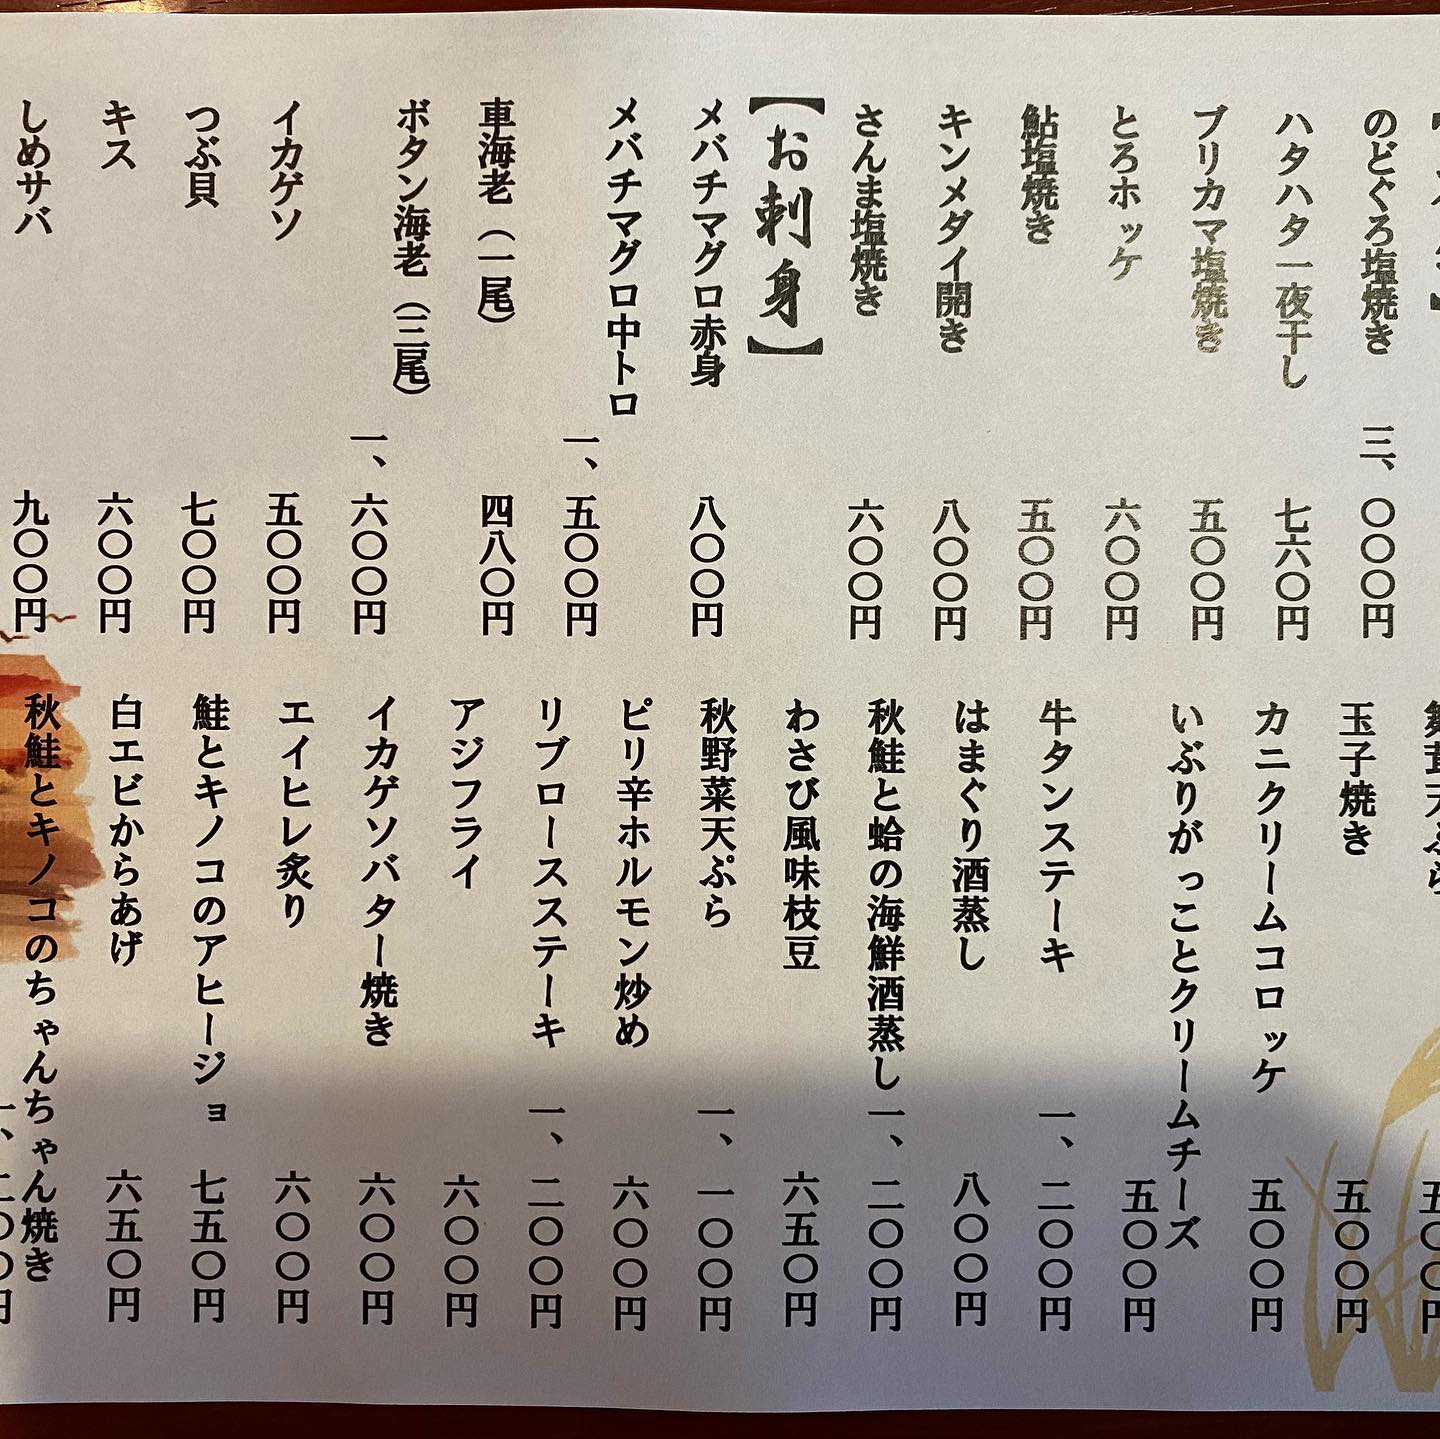 のどぐろ塩焼き 三、〇〇〇円
ハタハタ一夜干し 七六〇円
ブリカマ塩焼き 五〇〇円
とろホッケ 六〇〇円
鮎塩焼き 五〇〇円
キンメダイ開き 八〇〇円
さんま塩焼き 六〇〇円
【お刺身】
メバチマグロ赤身 八〇〇円
メバチマグロ中トロ 一、五〇〇円
車海老（一尾） 四八〇円
ボタン海老（三尾） 一、六〇〇円
イカゲソ 五〇〇円
つぶ貝 七〇〇円
キス 六〇〇円
しめサバ 九〇〇円
玉子焼き 五〇〇円
カニクリームコロッケ 五〇〇円
いぶりがっことクリームチーズ 五〇〇円
牛タンステーキ 一、二〇〇円
はまぐり酒蒸し 八〇〇円
秋鮭と蛤の海鮮酒蒸し 一、二〇〇円
わさび風味枝豆 六五〇円
秋野菜天ぷら 一、一〇〇円
ピリ辛ホルモン炒め 六〇〇円
リブロースステーキ 一、二〇〇円
アジフライ 六〇〇円
イカゲソバター焼き 六〇〇円
エイヒレ炙り 六〇〇円
鮭とキノコのアヒージョ 七五〇円
白エビからあげ 六五〇円
秋鮭とキノコのちゃんちゃん焼き 一、二〇〇円